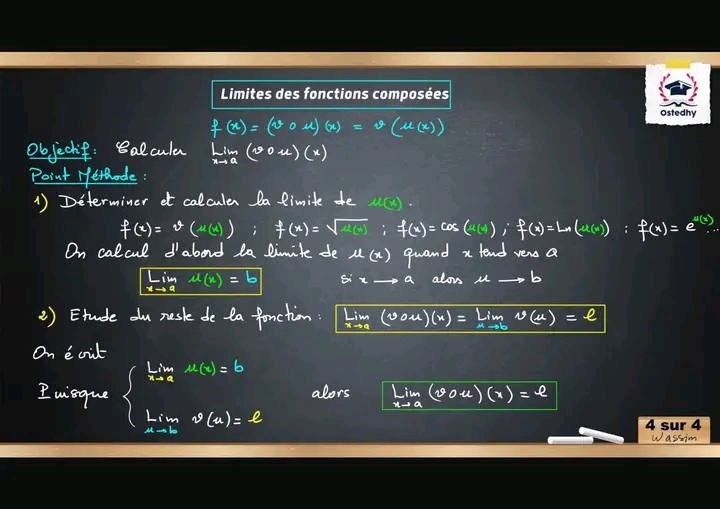 Limites des fonctions composées
Ostedhy
f(x) = (v o u)(x) = v(u(x))
Objectif : Calculer Lim x→a (v o u)(x)
Point Méthode :
1) Déterminer et calculer la limite de u(x).
f(x) = v(u(x)) ; f(x) = √u(x) ; f(x) = cos(u(x)) ; f(x) = Ln(u(x)) ; f(x) = e^u(x) ...
On calcul d'abord la limite de u(x) quand x tend vers a
Lim x→a u(x) = b si x → a alors u → b
2) Etude du reste de la fonction : Lim x→a (v o u)(x) = Lim u→b v(u) = l
On écrit
Puisque { Lim x→a u(x) = b
Lim u→b v(u) = l
alors Lim x→a (v o u)(x) = l
4 sur 4
Wassim